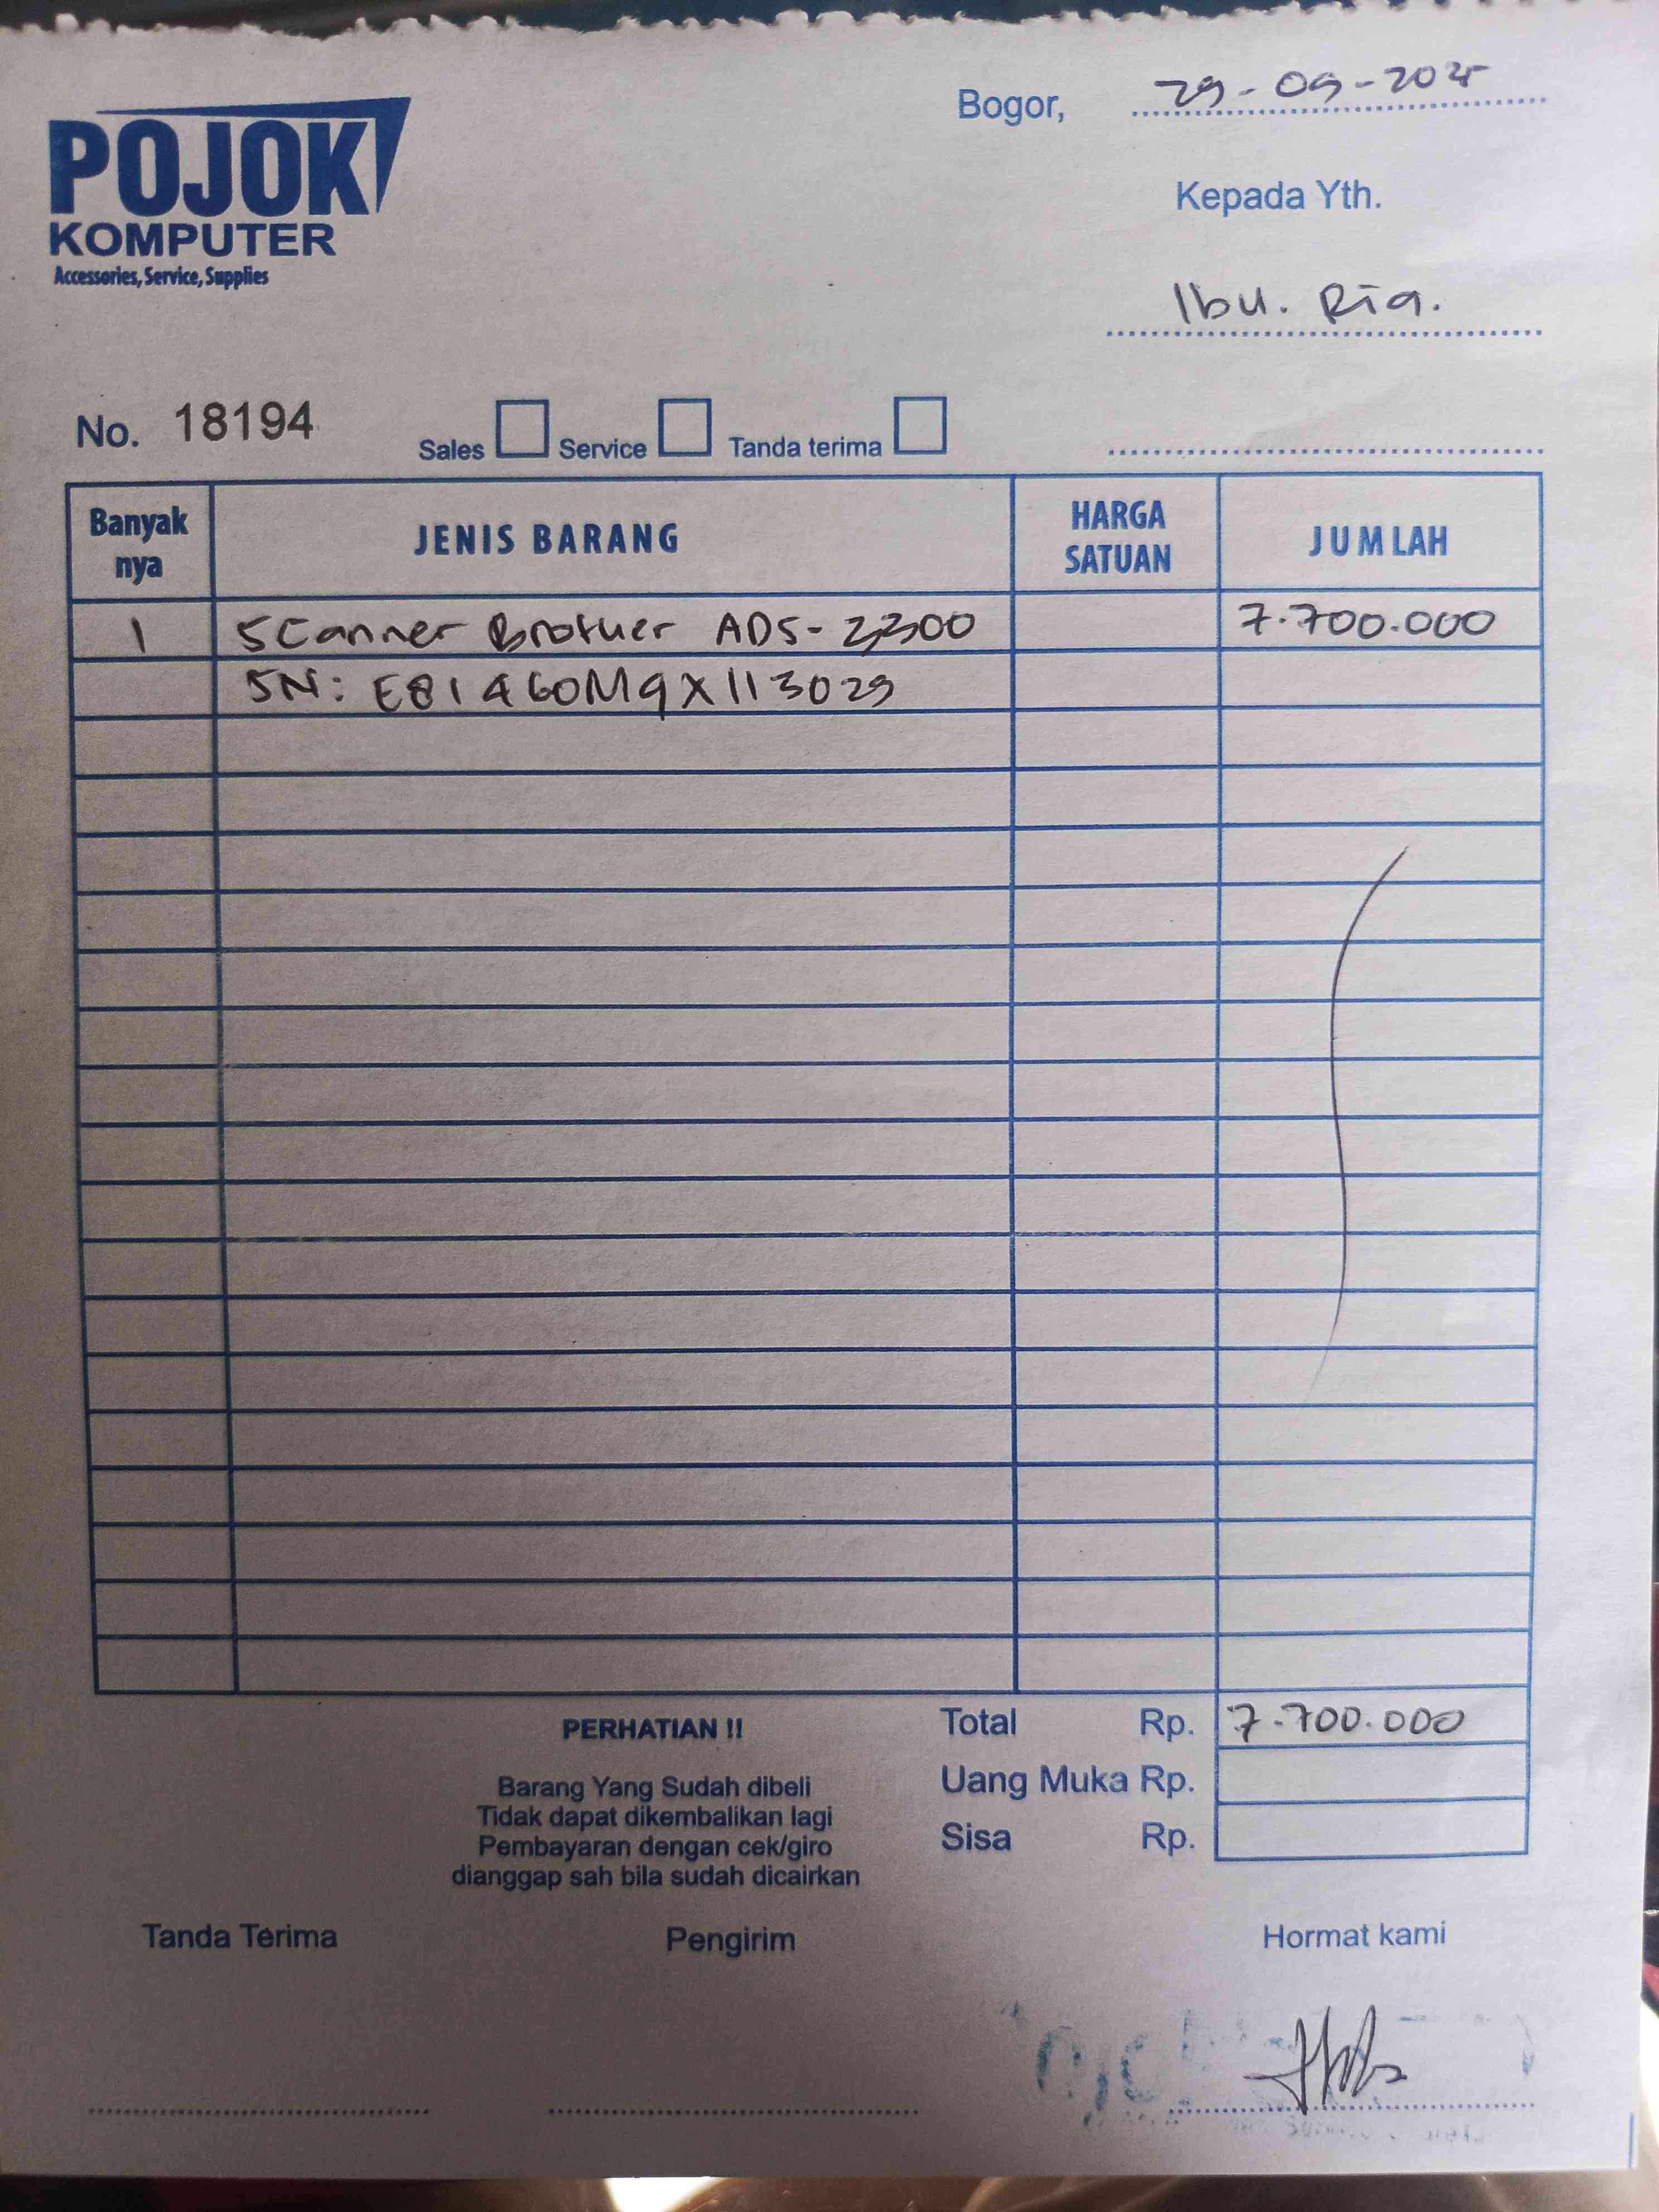 Bogor, 29-09-2025
POJOK
KOMPUTER
Accessories, Service, Supplies
Kepada Yth.
Ibu. Ria.
No. 18194
Sales Service Tanda terima
Banyak nya JENIS BARANG HARGA SATUAN JUMLAH
1 Scanner Brother ADS-3300 7.700.000
SN: E81460M9X113029
Total Rp. 7.700.000
Uang Muka Rp.
Sisa Rp.
PERHATIAN !!
Barang Yang Sudah dibeli
Tidak dapat dikembalikan lagi
Pembayaran dengan cek/giro
dianggap sah bila sudah dicairkan
Tanda Terima Pengirim Hormat kami